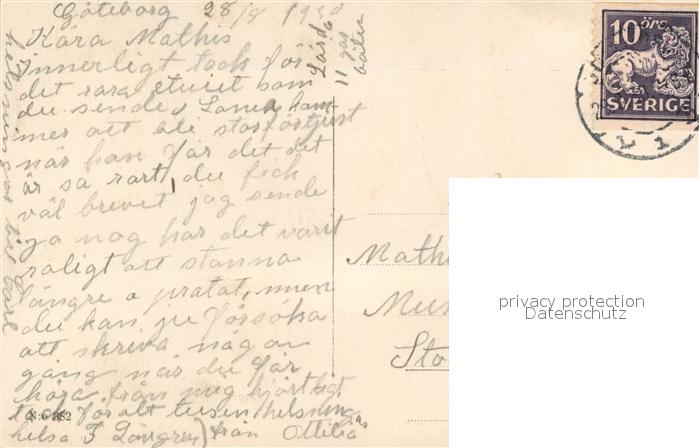 Göteborg 28/8 1930
Kära Mathis
innerligt tack för
det rara etuiet som
du sende, kom
mer att bli storförtjust
när han får det det
är så rart, du fick
väl brevet jag sende
ja nog har det varit
roligt att stanna
längre o pratat, men
du kan ju försöka
att skriva någon
gång när du får
höra från mig hjertligt
tack för alt tusen helsningar
helsa från Ottilia
helsningar til Carl
11
10 ÖRE
SVERIGE
Mathi
Mun
Sto
privacy protection
Datenschutz
N:o 882